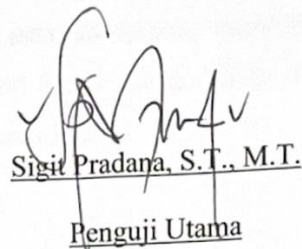 Sigit Pradana, S.T., M.T.
Penguji Utama